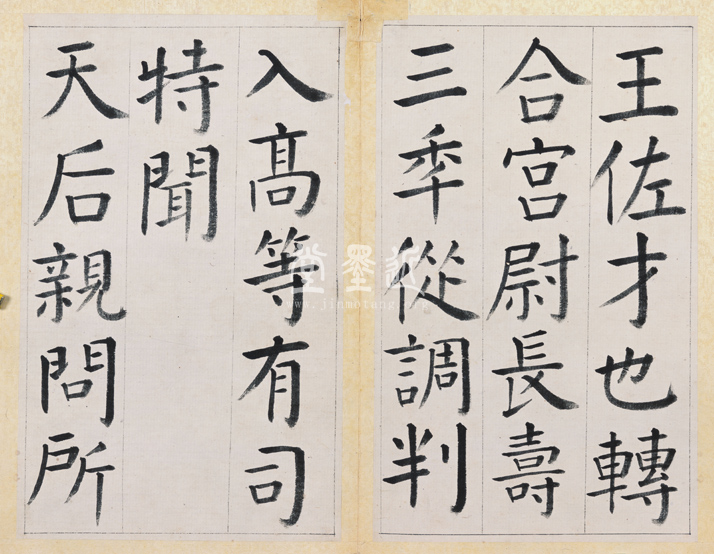 王佐才也轉
合宮尉長壽
三年從調判
入高等有司
特聞
天后親問所
近墨堂
www.jinmotang.com